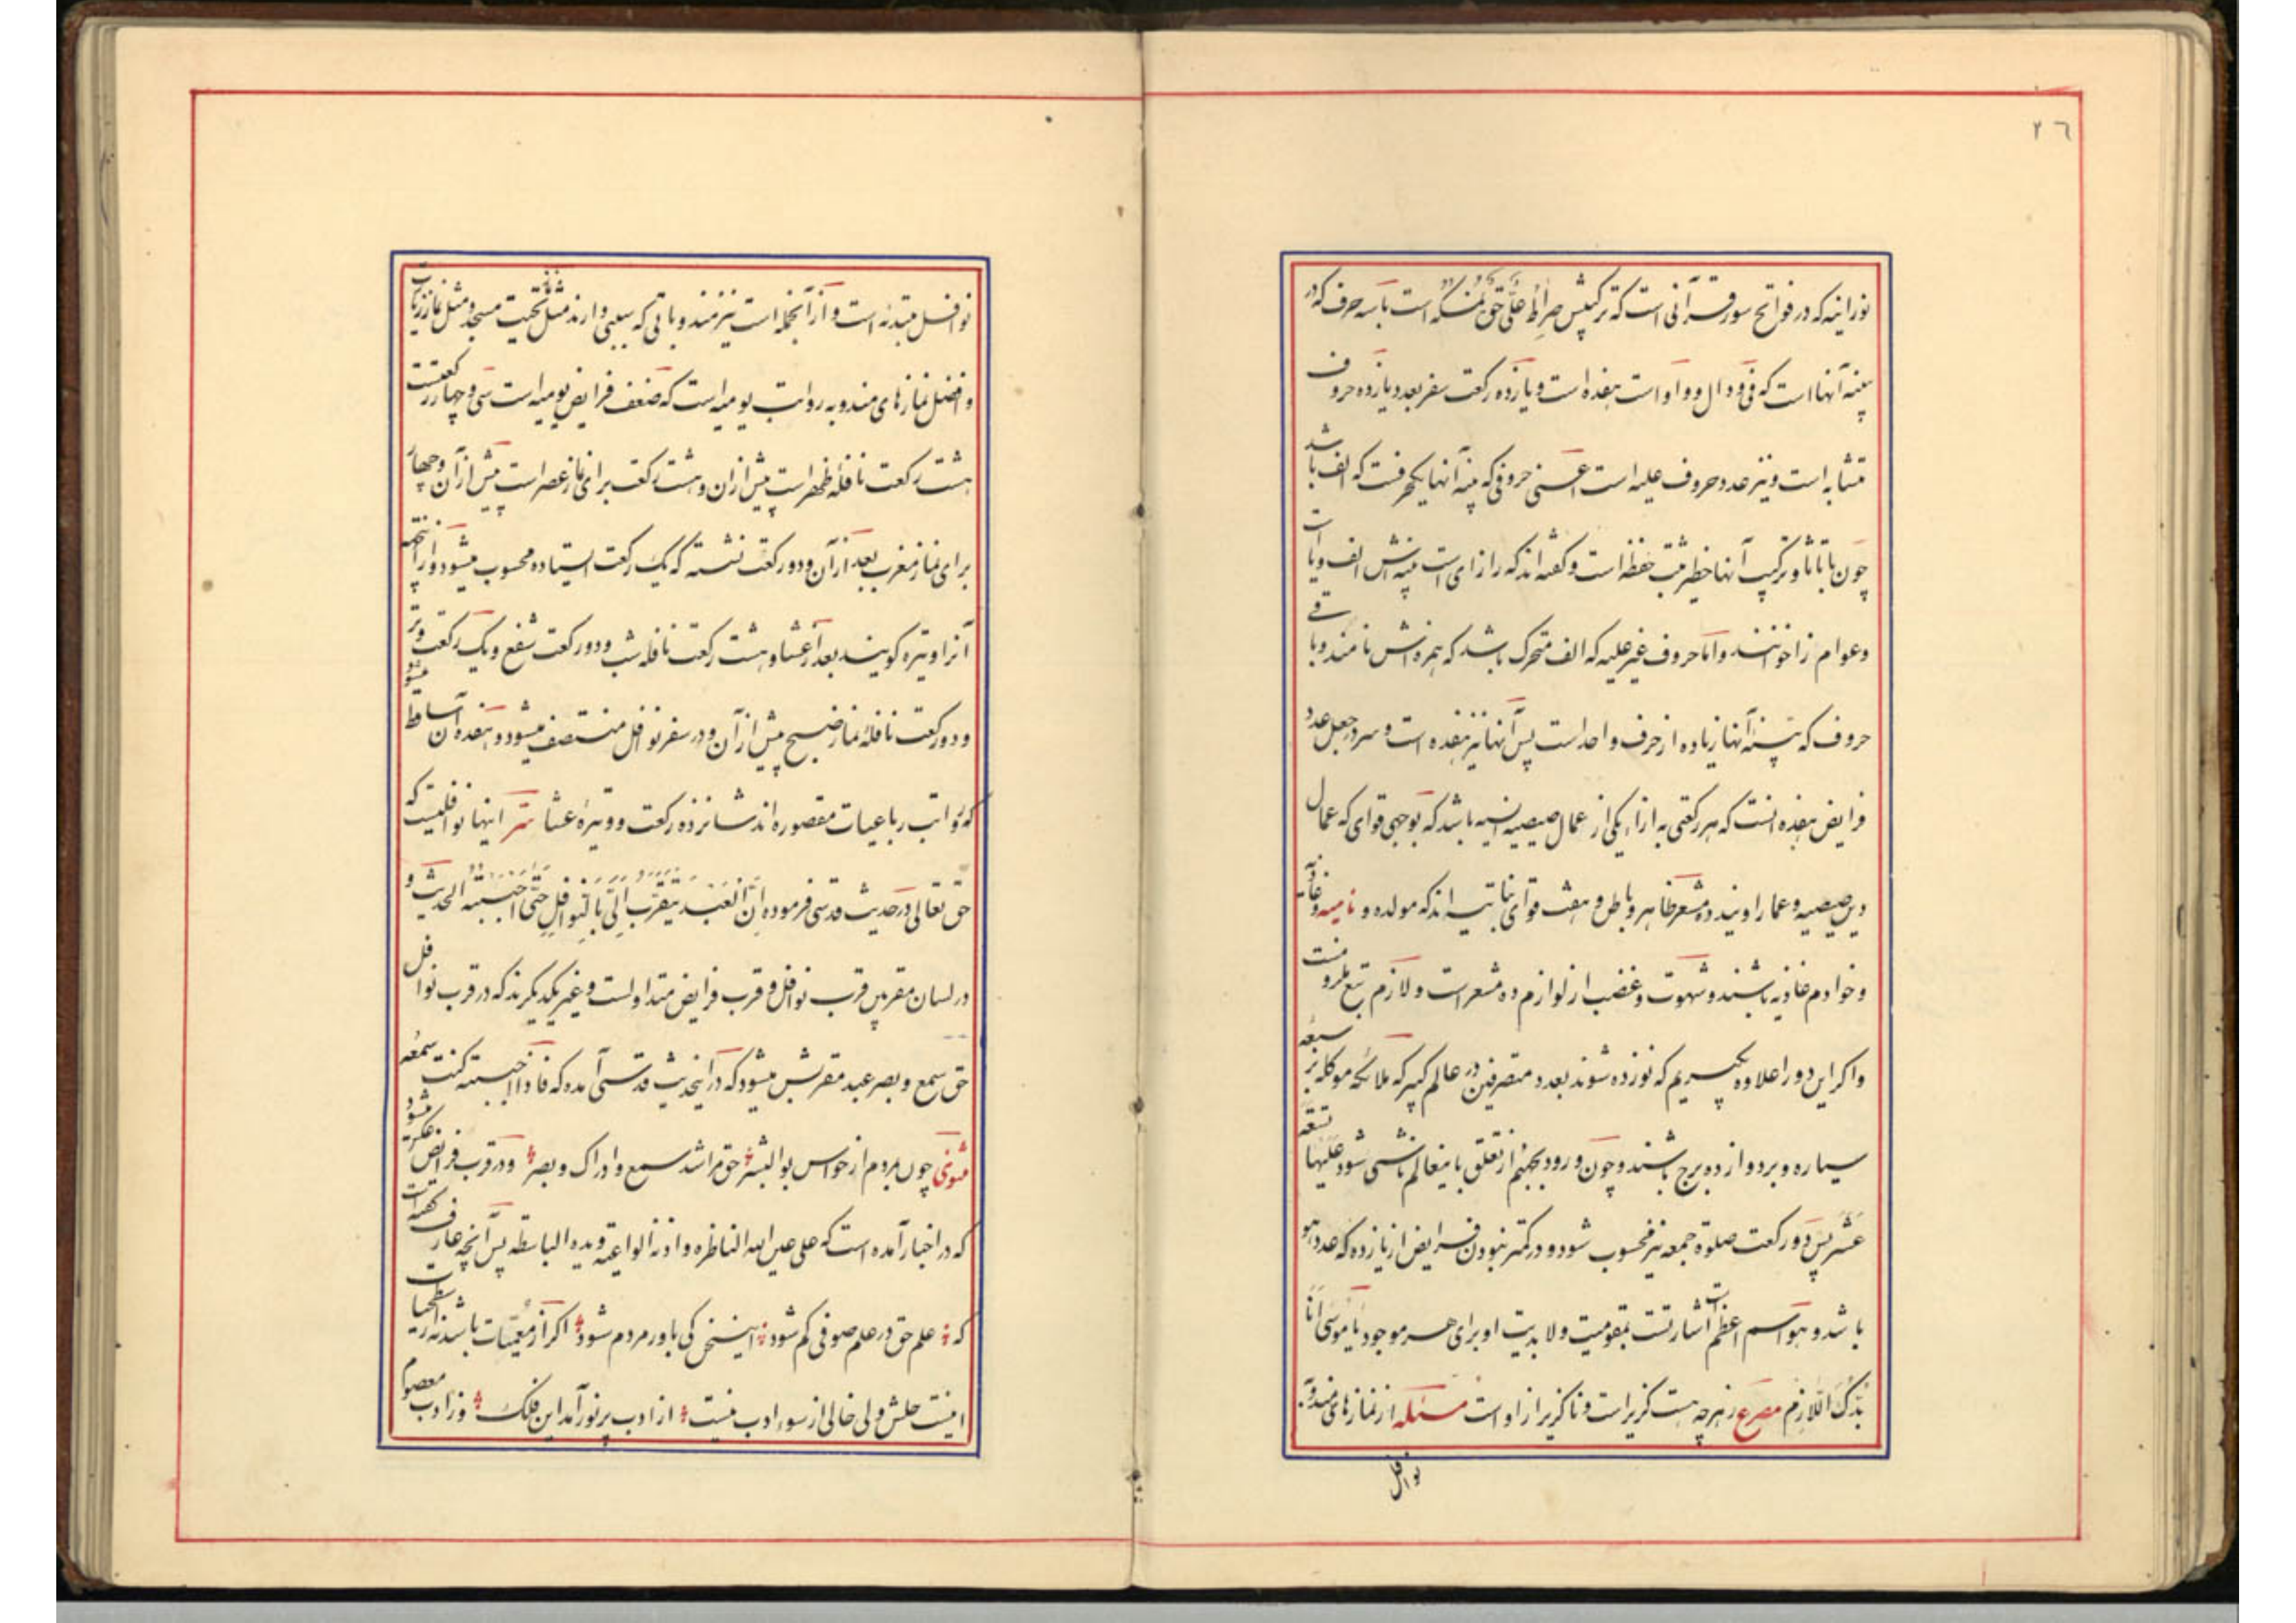 ٢٦
نورانیه که در فواتح سور قرآنی است که ترکیبش صِراطُ عَلیٍّ حَقٌّ نُمسِکُهُ است با سه حرف که در
بینه آنها است که فی و دال و واو است هفده است و یازده رکعت سفر بعدد یازده حروف
متشابه است و نیز عدد حروف علیه است اعنی حروفی که بینه آنها یکحرفست که الف باشد
چون باتاثا و ترکیب آنها خطیر مثبت حفظه است و گفته اند که را زای است بینه اش الف و یا است
و عوام زا خوانند و اما حروف غیر علیه که الف متحرک باشد که همزه اش نامند و باقی
حروف که بینه آنها زیاده از حرف واحد است پس آنها نیز هفده است و سر در جعل عدد
فرایض هفده آنست که هر رکعتی به ازاء یکی از عمال صیصیه انسیه باشد که بوجهی قوای که عمال
دیر صیصیه و عمار اویند ده مشعر ظاهر و باطن و هفت قوای نباتیه اند که مولده و نامیه و غاذیه
و خوادم غاذیه باشند و شهوت و غضب از لوازم ده مشعر است و لازم تبع ملزومست
و اگر این دو را علاوه بگیریم که نوزده شوند بعدد متصرفین در عالم کبیر که ملائکه موکله بر سبعه
سیاره و بر دوازده برج باشند و چون ورود بجهنم از تعلق باینعالم ناشی شود علیها تسعة
عشر پس دو رکعت صلوة جمعه نیز محسوب شود و در کمتر نبودن فرایض از یازده که عدد هو
باشد و هو اسم اعظم است اشارتست بمقومیت و لابدیت او برای هر موجود یا موسی انا
بُدُّکَ اللّازم مصرع ز هر چه هست گزیر است و ناگزیر از اوست مسئله از نمازهای مندوبه
نوافل
نوافل مبتدئه است و از آنجمله است نیز مندوباتی که سببی دارند مثل نماز تحیت مسجد و مثل نماز زیارت
و افضل نمازهای مندوبه رواتب یومیه است که ضعف فرایض یومیه است سی و چهار رکعتست
هشت رکعت نافله ظهر است پیش از ان و هشت رکعت برای نماز عصر است پیش از آن و چهار
برای نماز مغرب بعد از آن و دو رکعت نشسته که یک رکعت ایستاده محسوب میشود و از اینجهة
آنرا وتیره گویند بعد از عشا و هشت رکعت نافله شب و دو رکعت شفع و یک رکعت وتر
و دو رکعت نافله نماز صبح پیش از آن و در سفر نوافل منتصف میشود و هفده آن ساقط میشود
که رواتب رباعیات مقصوره اند شانزده رکعت و وتیرهٔ عشا سر اینها نوافلیست که
حق تعالی در حدیث قدسی فرموده اِنَّ العَبدَ یَتَقَرَّبُ اِلَیَّ بِالنَّوافِلِ حَتّی اَحبَبتُهُ الحدیث و
در لسان مقربین قرب نوافل و قرب فرایض متداولست و غیر یکدیگرند که در قرب نوافل
حق سمع و بصر عبد مقربش میشود که در اینحدیث قدسی آمده که فاذا احببته کنت سمعه
مثنوی چون بمردم از حواس بو البشر حق مرا شد سمع و ادراک و بصر و در قرب فرایض عکس میشود
که در اخبار آمده است که علی عین الله الناظره و اذنه الواعیه و یده الباسطه پس آنچه عارف گفته است
که علم حق در علم صوفی گم شود اینسخن کی باور مردم شود اگر از معمیات باشد نه از شطحیات
اینست حلش ولی خالی از سوء ادب نیست از ادب پر نور آمد این فلک وز ادب معصوم